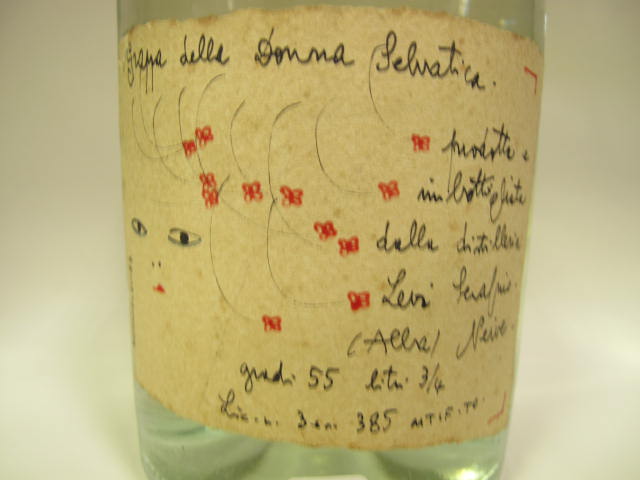 grappa della Donna Selvatica.
prodotta e
imbottigliata
dalla distilleria
Levi Serafino.
(Alba) Neive.
gradi 55 litri 3/4
Lic. n. 385